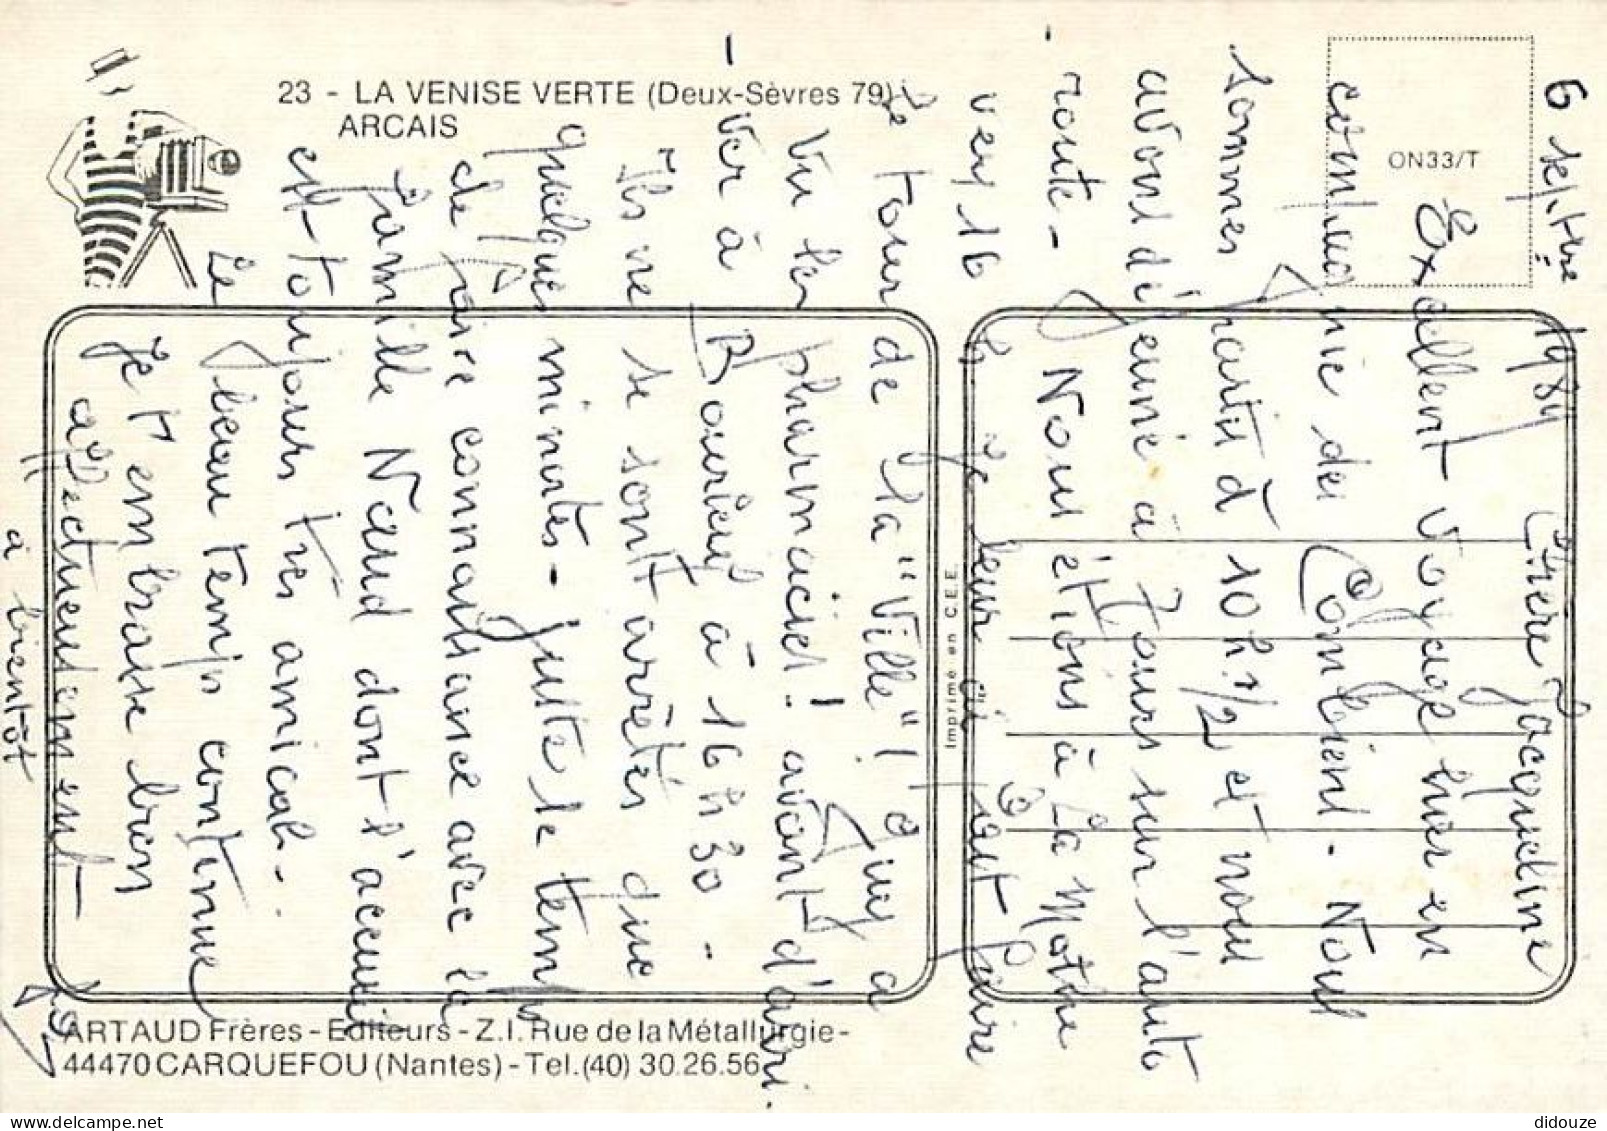 23 - LA VENISE VERTE (Deux-Sèvres 79)
ARCAIS
ON33/T
6 septembre 1984
Chère Jacqueline
Excellent voyage hier en
compagnie des Comblent - Nous
sommes partis à 10h 1/2 et nous
avons déjeuné à Tours sur l'auto
- route - Nous étions à La Mothe
vers 16 h Je leur ai fait faire
le tour de "la Ville"! Puis a
vu les pharmacies! avant d'arri-
- ver à Bourleuf à 16 h 30 -
Ils ne se sont arrêtés que
quelques minutes - juste le temps
de faire connaissance avec la
famille Naud dont l'accueil
est toujours très amical -
Le beau temps continue
Je t'embrasse bien
affectueusement -
à bientôt
Imprimé en C.E.E.
ARTAUD Frères - Editeurs - Z.I. Rue de la Métallurgie -
44470 CARQUEFOU (Nantes) - Tel. (40) 30.26.56
didouze